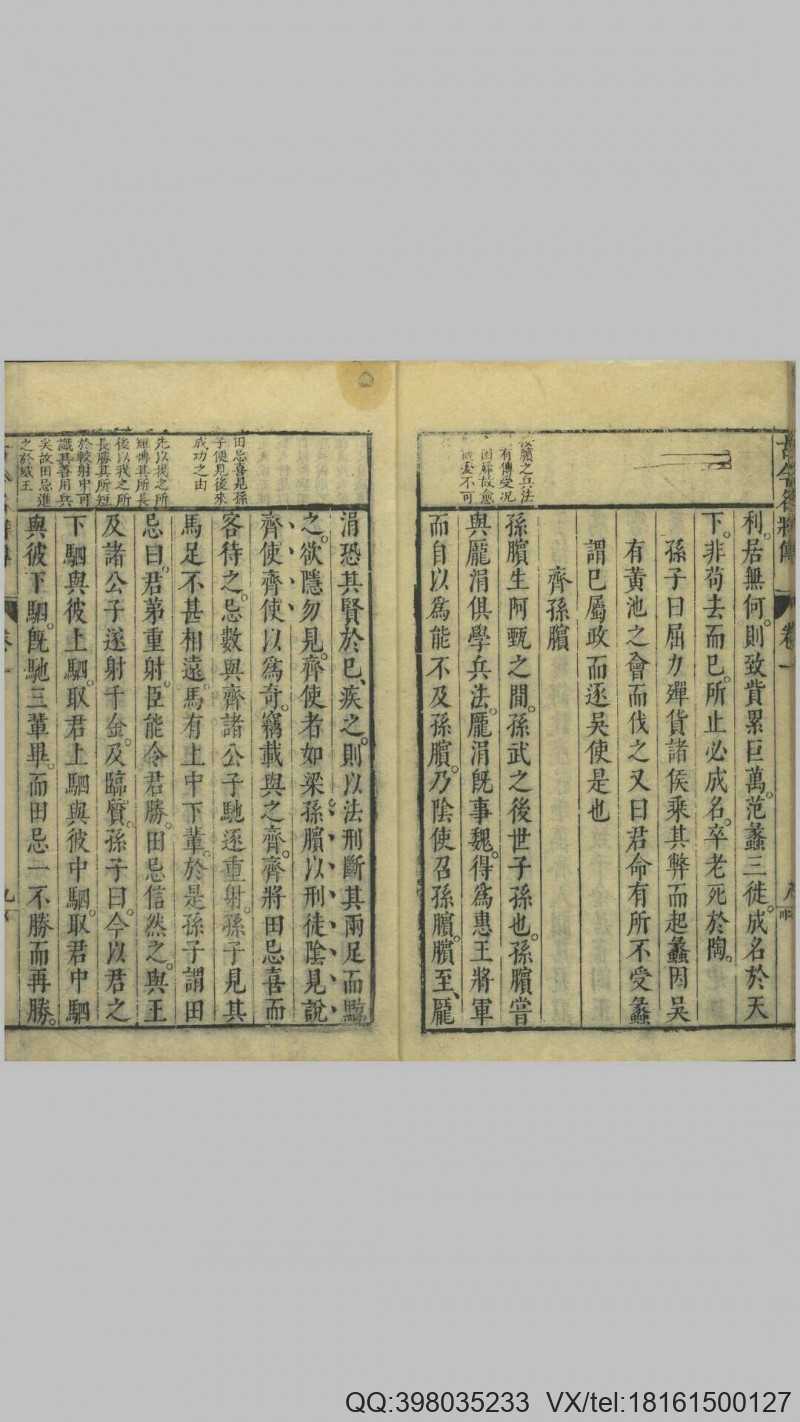 利。居無何。則致貲累巨萬。范蠡三徙。成名於天
下。非苟去而已。所止必成名。卒老死於陶。
孫子曰屈力殫貨諸侯乘其弊而起蠡因吳
有黃池之會而伐之又曰君命有所不受蠡
謂已屬政而逐吳使是也
齊孫臏
孫臏生阿甄之間。孫武之後世子孫也。孫臏嘗
與龐涓俱學兵法。龐涓既事魏。得為惠王將軍
而自以為能不及孫臏。乃陰使召孫臏。臏至、龐
臏之兵法
有傳受况
不可
涓恐其賢於已、疾之。則以法刑斷其兩足而黥
之。欲隱勿見。齊使者如梁孫臏以刑徒陰見、說、
齊、使、齊、使、以為奇。竊載與之齊。齊將田忌喜而
客待之。忌數與齊諸公子馳逐重射。孫子見其
馬足不甚相遠。馬有上中下輩。於是孫子謂田
忌曰。君第重射。臣能令君勝。田忌信然之。與王
及諸公子逐射千金。及臨質。孫子曰。今以君之
下駟與彼上駟。取君上駟與彼中駟。取君中駟
與彼下駟。既馳三輩畢。而田忌一不勝而再勝。
田忌喜見孫
子便見後來
成功之由
先以我之所
短傳其所長
後以我之所
長勝其所短
於較射中可
識其善用兵
矣故田忌進
之於威王
卷一
QQ:398035233 VX/tel:18161500127